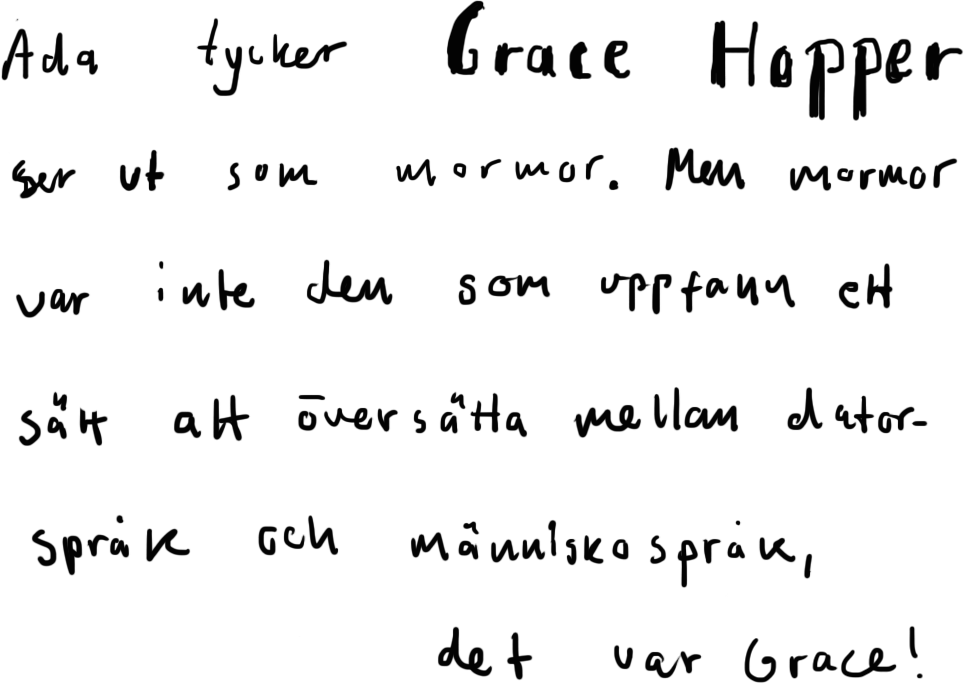 Ada tycker Grace Hopper
ser ut som mormor. Men mormor
var inte den som uppfann ett
sätt att översätta mellan dator-
språk och människospråk,
det var Grace!